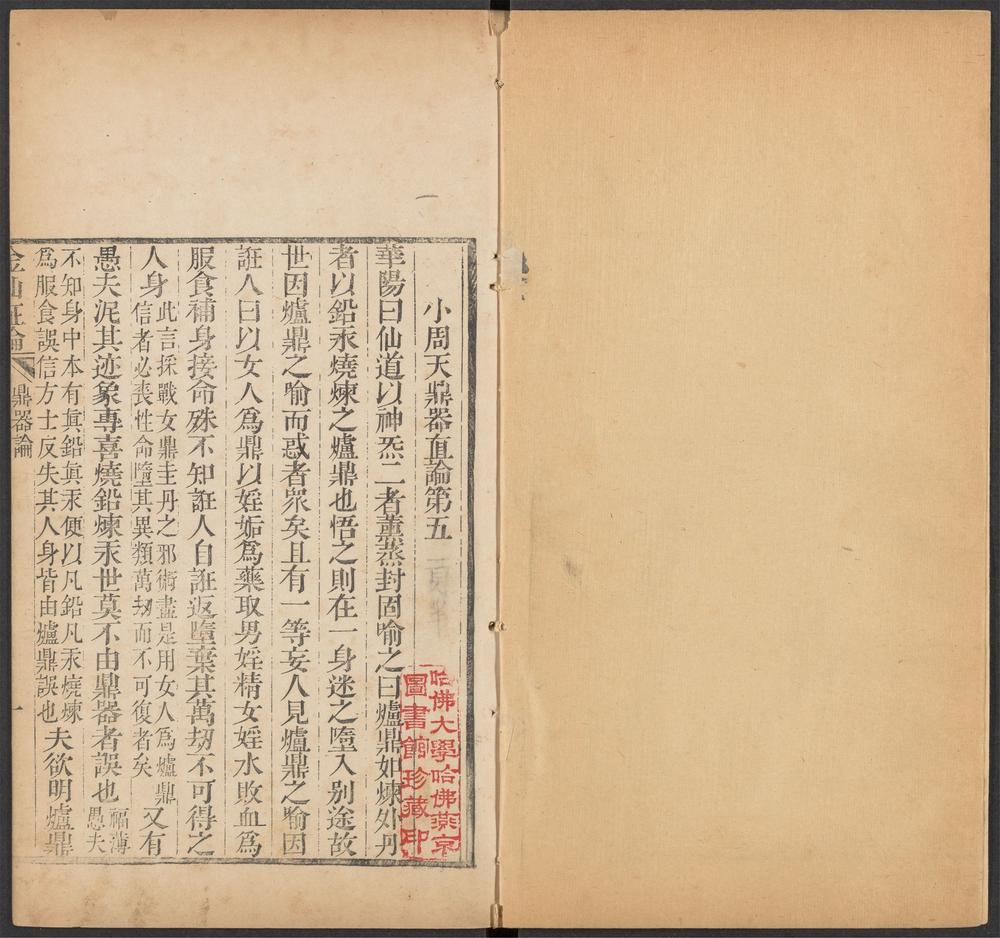 小周天鼎器直論第五
華陽曰仙道以神炁二者薰蒸封固喻之曰爐鼎如煉外丹
者以鉛汞燒煉之爐鼎也悟之則在一身迷之墮入别途故
世因爐鼎之喻而惑者衆矣且有一等妄人見爐鼎之喻因
誑人曰以女人爲鼎以婬姤爲藥取男婬精女婬水敗血爲
服食補身接命殊不知誑人自誑返墮棄其萬刼不可得之
人身
此言採戰女鼎圭丹之邪術盡是用女人爲爐鼎
信者必喪性命墮其異類萬刼而不可復者矣
又有
愚夫泥其迹象專喜燒鉛煉汞世莫不由鼎器者誤也
福薄
愚夫
不知身中本有眞鉛眞汞便以凡鉛凡汞燒煉
爲服食誤信方士反失其人身皆由爐鼎誤也
夫欲明爐鼎
金仙證論
鼎器論
一
哈佛大學哈佛燕京
圖書館珍藏印